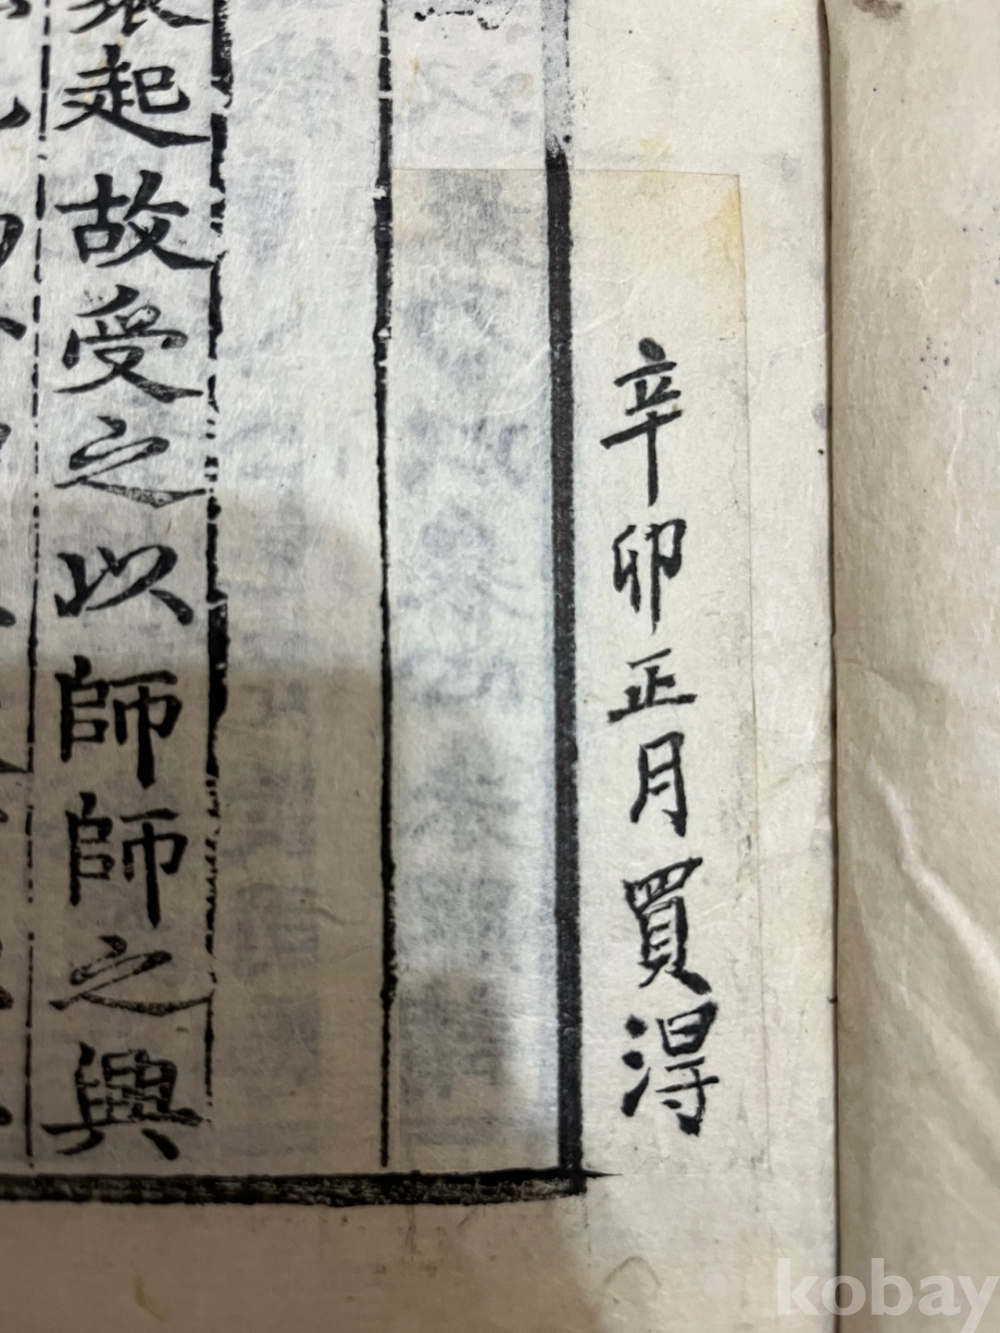 辛卯正月買淂
起故受之以師師之興
kobay